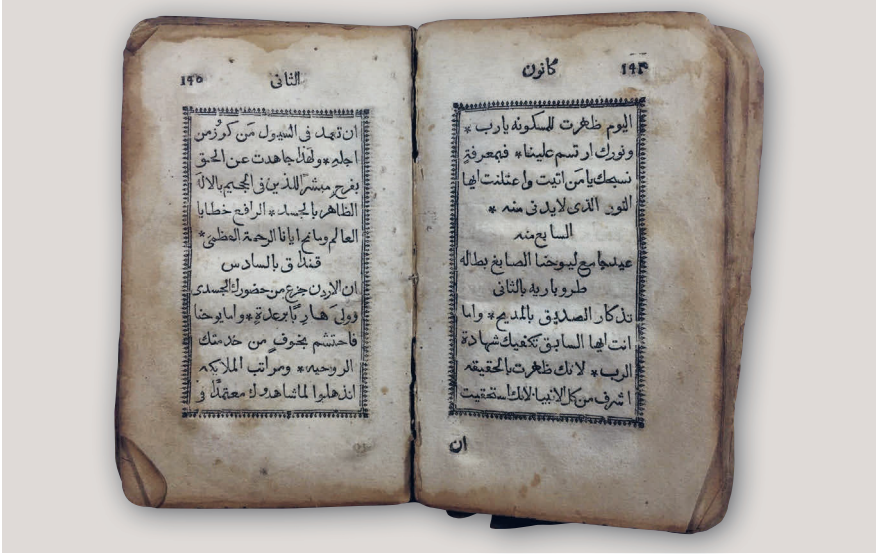 ١٤٤
كانون
اليوم ظهرت للمسكونه يارب *
ونورك ارتسم علينا * فبمعرفةٍ
نسبحك يا من اتيت واعتلنت ايها
النور الذى لا يدنى منه *
السابع منه
عيد جامع ليوحنا الصابغ بطاله
طروباريه بالثانى
تذكار الصديق بالمديح * واما
انت ايها السابق تكفيك شهادة
الرب * لانك ظهرت بالحقيقه
اشرف من كل الانبيا لانك استحقيت
ان
الثانى
١٤٥
ان تعمد فى السيول من كورز من
اجله * ولهذا جاهدت عن الحق
بفرح مبشرًا للذين فى الجحيم بالاله
الظاهر بالجسد * الرافع خطايا
العالم ومانح ايانا الرحمة العظمى *
قنداق بالسادس
ان الاردن جزع من حضورك الجسدى
وولى هاربًا برعدةٍ * واما يوحنا
فاحتشم بخوف من خدمتك
الروحيه * ومراتب الملايكه
انذهلوا لما شاهدوك معتمدًا فى